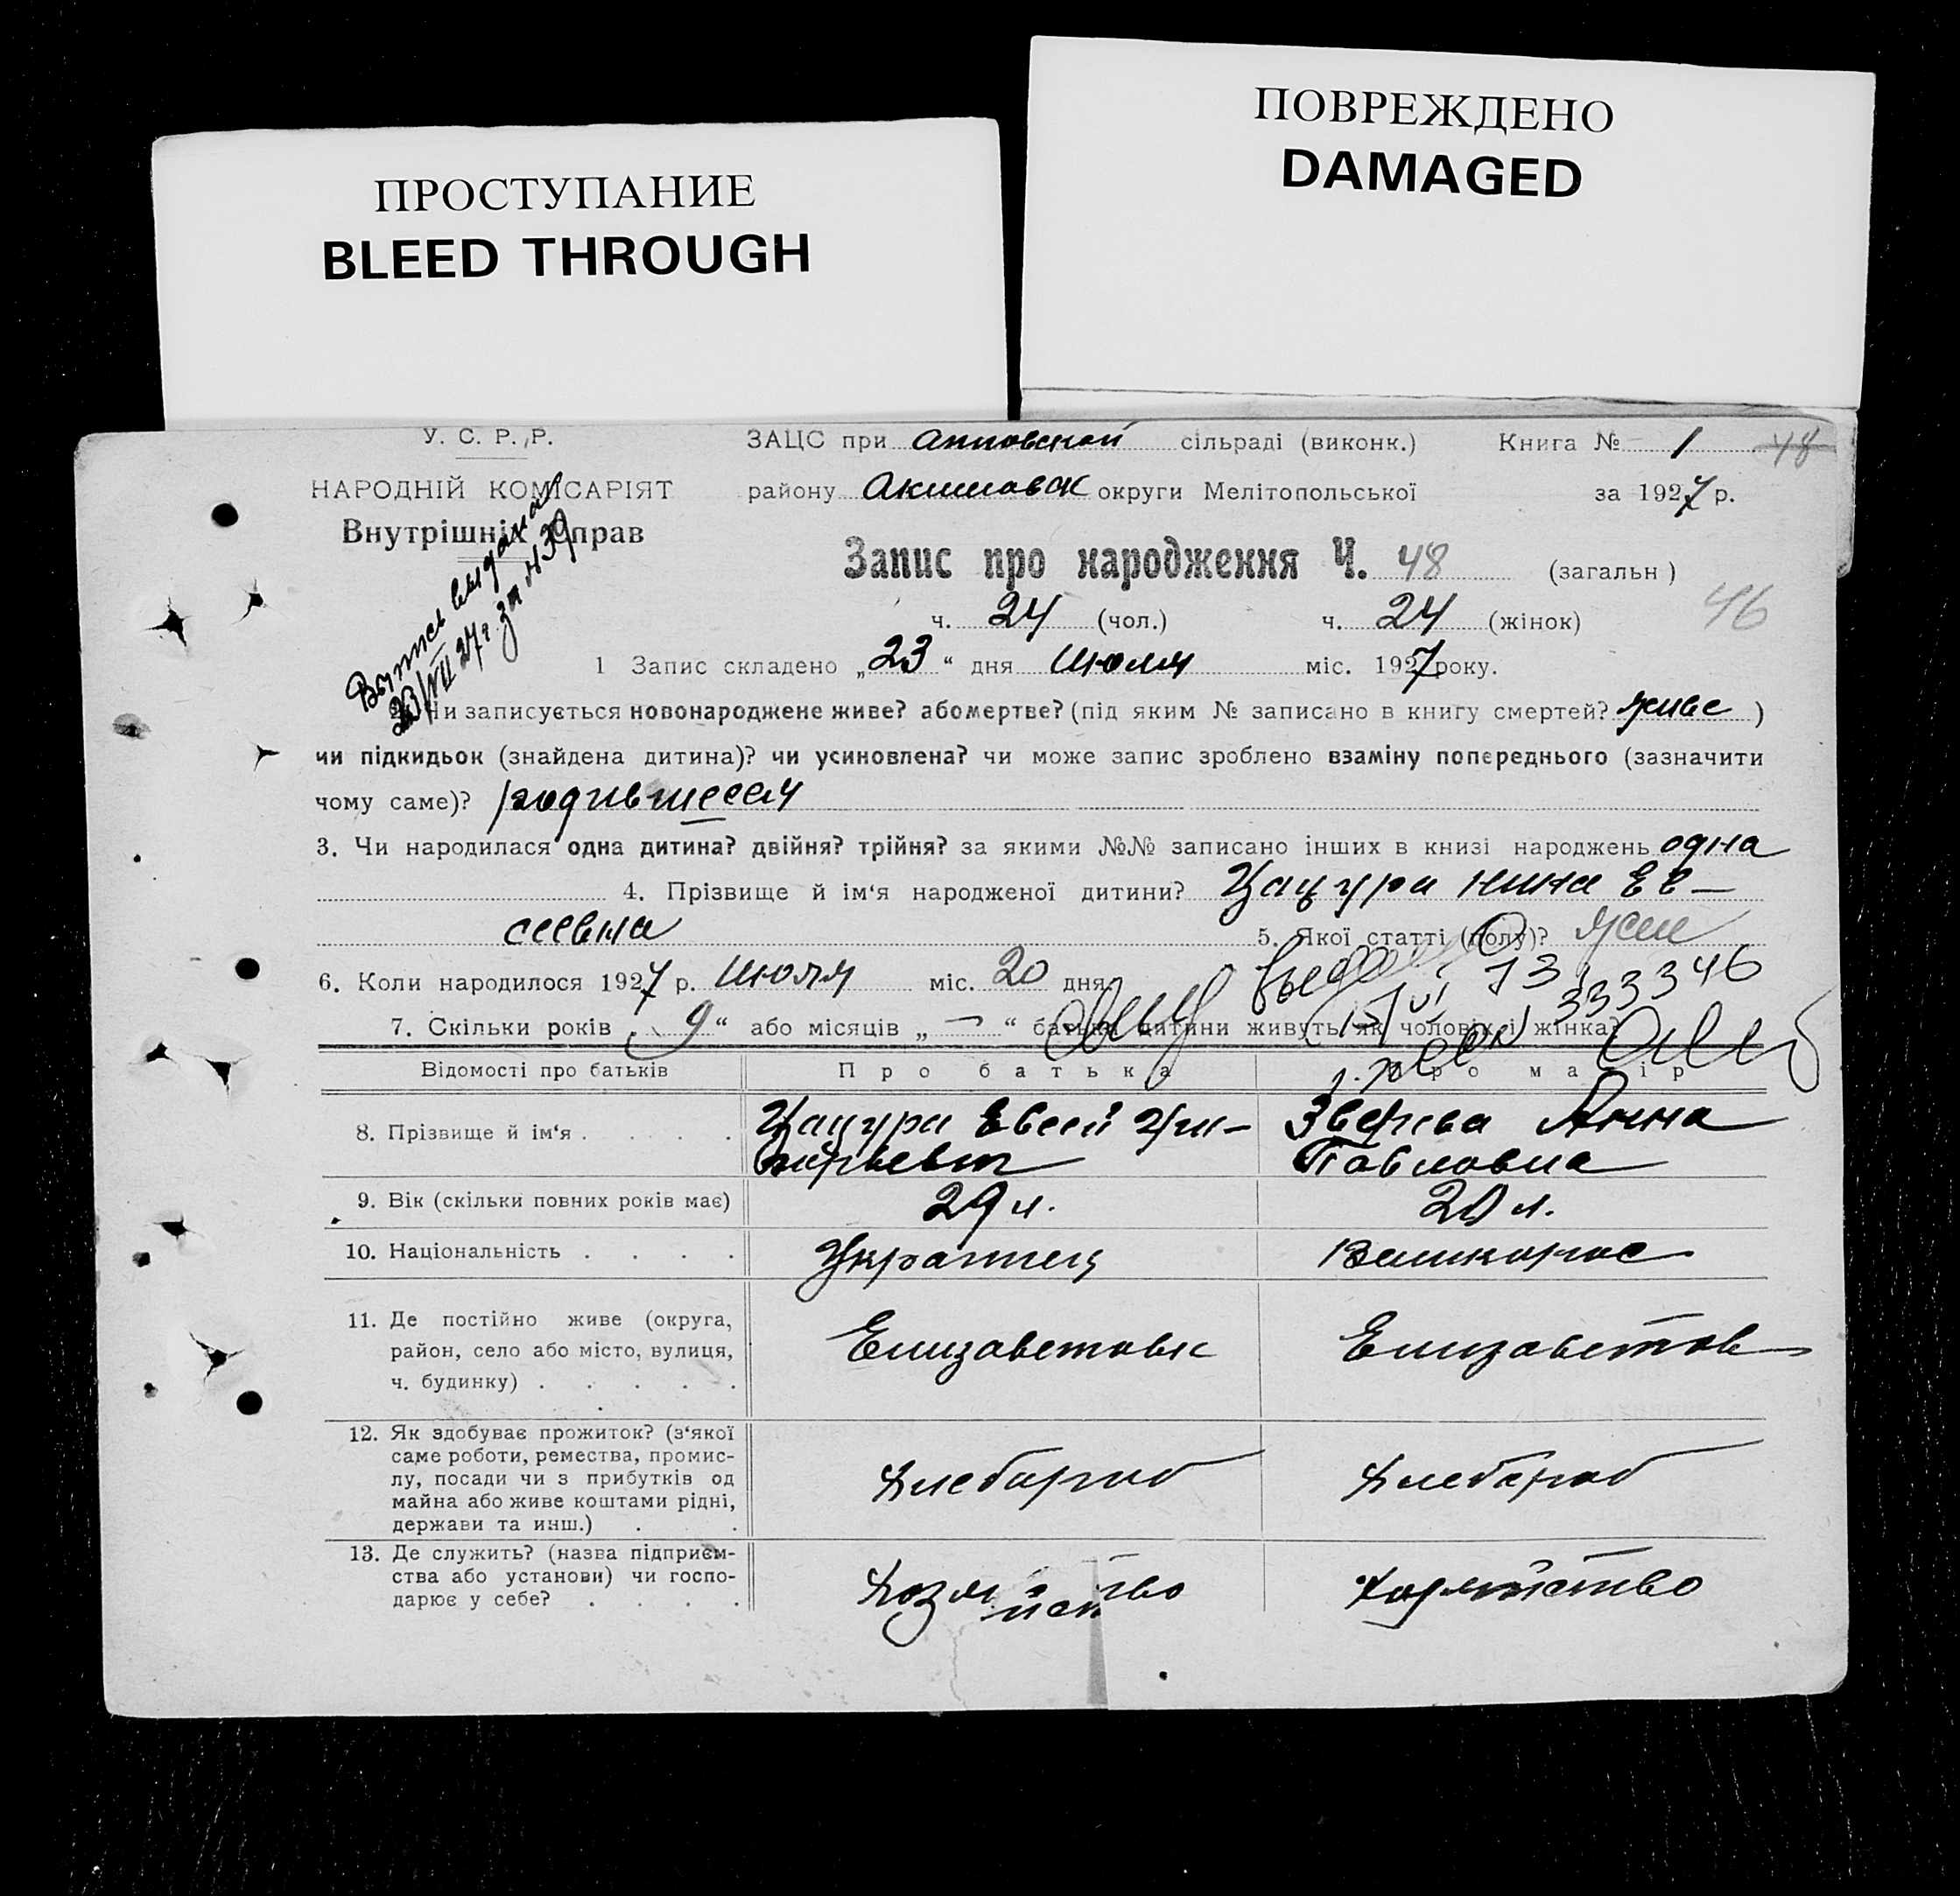 ПОВРЕЖДЕНО
DAMAGED
ПРОСТУПАНИЕ
BLEED THROUGH
У. С. Р. Р.
НАРОДНІЙ КОМІСАРІЯТ
Внутрішніх Справ
Выпись выдана
23/VII 27 г. за № 39
ЗАЦС при Анновской сільраді (виконк.) Книга № 1 48
району Акимовск округи Мелітопольської за 1927 р.
Запис про народження Ч. 48 (загальн)
ч. 24 (чол.) ч. 24 (жінок) 46
1 Запис складено „23“ дня Июля міс. 1927 року.
2. Чи записується новонароджене живе? або мертве? (під яким № записано в книгу смертей? живе )
чи підкидьок (знайдена дитина)? чи усиновлена? чи може запис зроблено взаміну попереднього (зазначити
чому саме)? родившееся
3. Чи народилася одна дитина? двійня? трійня? за якими №№ записано інших в книзі народжень одна
4. Прізвище й ім‘я народженої дитини? Цацура Нина Ев-
сеевна 5. Якої статті (полу)? жен
6. Коли народилося 1927 р. Июля міс. 20 дня
333346
7. Скільки років „ 9 “ або місяців „ — “ батьки дитини живуть як чоловік і жінка?
Відомості про батьків Про батька Про матір
8. Прізвище й ім‘я . . . . . Цацура Евсей Гри- Зверева Анна
горьевич Павловна
9. Вік (скільки повних років має) 29 л. 20 л.
10. Національність . . . . Украинец Великорос
11. Де постійно живе (округа,
район, село або місто, вулиця, Елизаветовк Елизаветов
ч. будинку) . . . . .
12. Як здобуває прожиток? (з‘якої
саме роботи, ремества, промис-
лу, посади чи з прибутків од Хлебороб Хлебороб
майна або живе коштами рідні,
держави та инш.) . .
13. Де служить? (назва підприєм-
ства або установи) чи госпо- Хозяйство Хозяйство
дарює у себе? . . . .